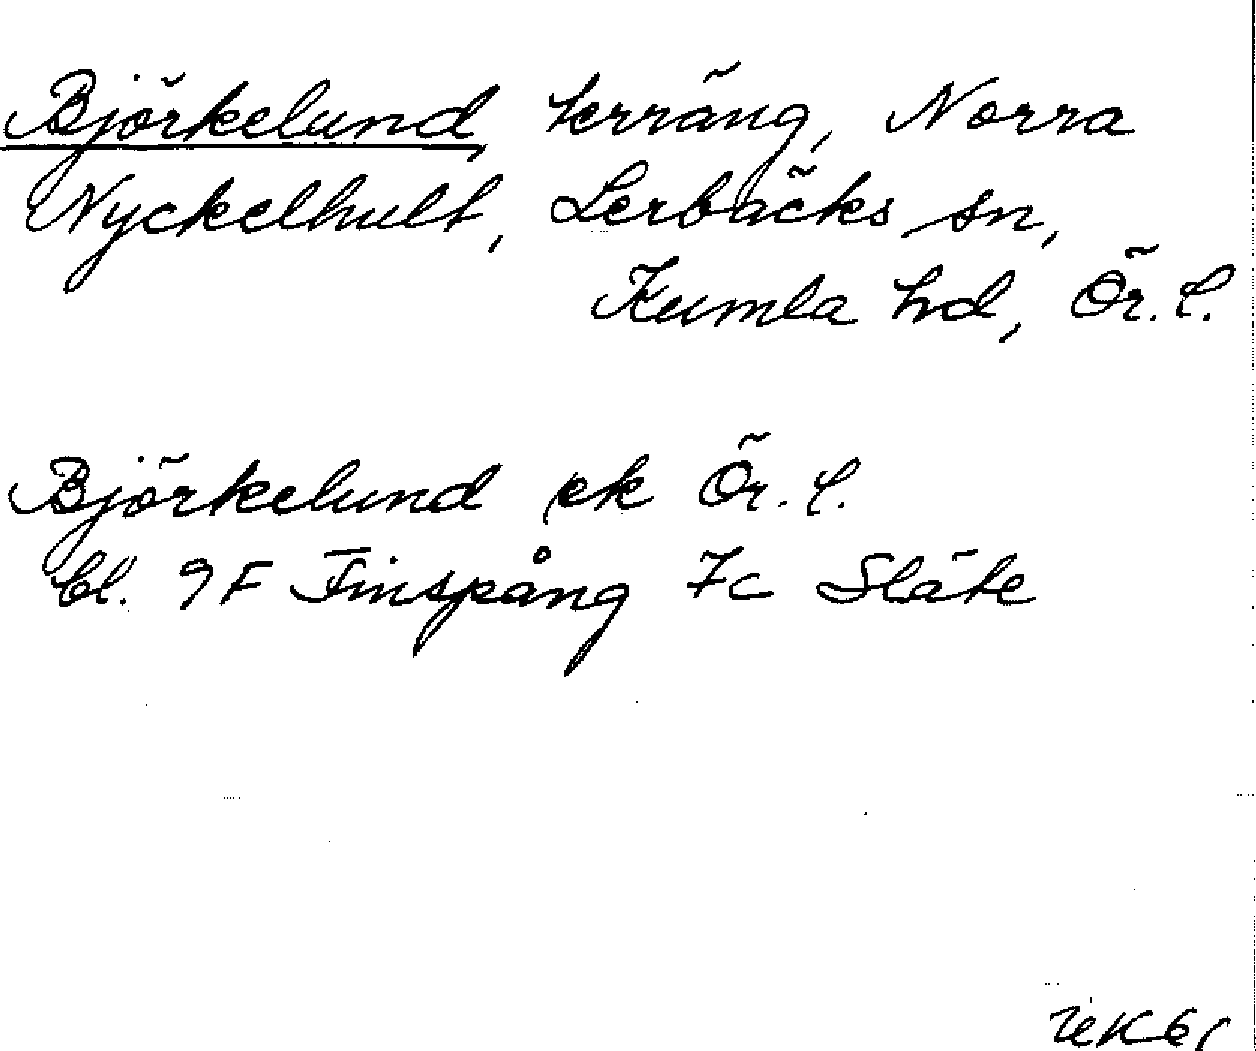 Björkelund, terräng, Norra
Nyckelhult, Lerbäcks sn,
Kumla hd, Ör. l.
Björkelund ek Ör. l.
bl. 9F Finspång 7c Släte